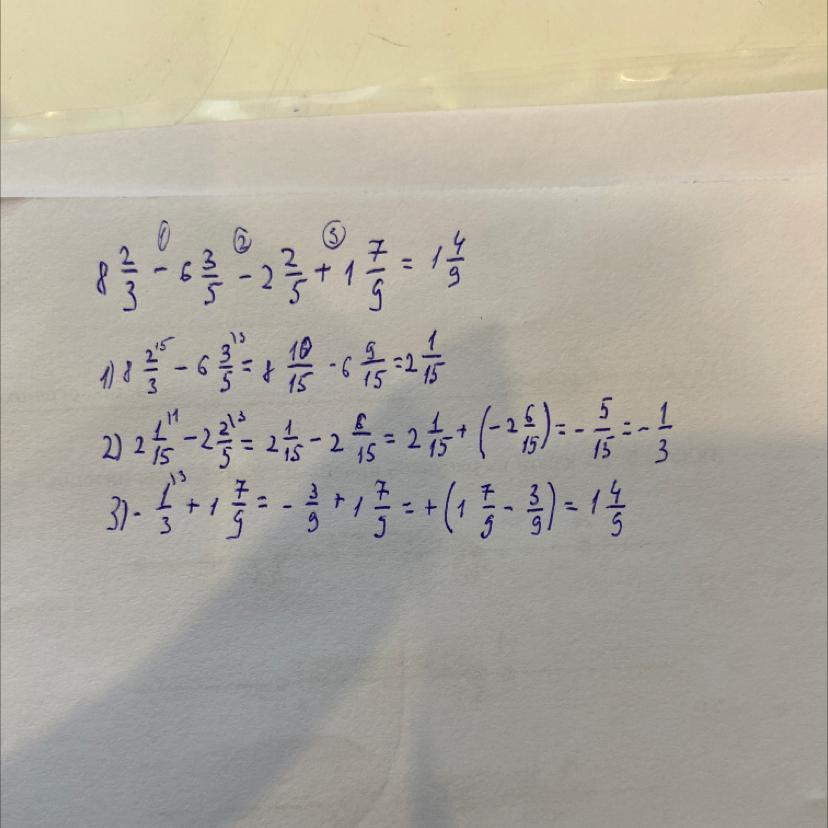 ① ② ③
8 2/3 - 6 3/5 - 2 2/5 + 1 7/9 = 1 4/9
1) 8 2/3^\5 - 6 3/5^\3 = 8 10/15 - 6 9/15 = 2 1/15
2) 2 1/15^\1 - 2 2/5^\3 = 2 1/15 - 2 6/15 = 2 1/15 + (-2 6/15) = - 5/15 = - 1/3
3) - 1/3^\3 + 1 7/9 = - 3/9 + 1 7/9 = + (1 7/9 - 3/9) = 1 4/9